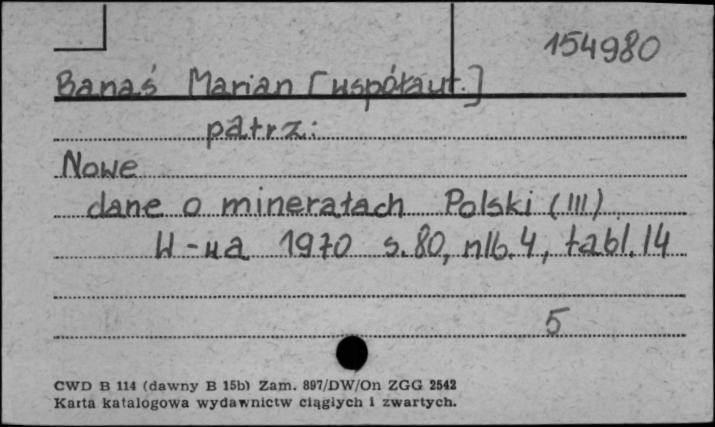 154980
Banaś Marian [współaut.]
patrz:
Nowe
dane o minerałach Polski (III)
W-wa 1970 s.80, nlb.4, tabl.14
5
CWD B 114 (dawny B 15b) Zam. 897/DW/On ZGG 2542
Karta katalogowa wydawnictw ciągłych i zwartych.